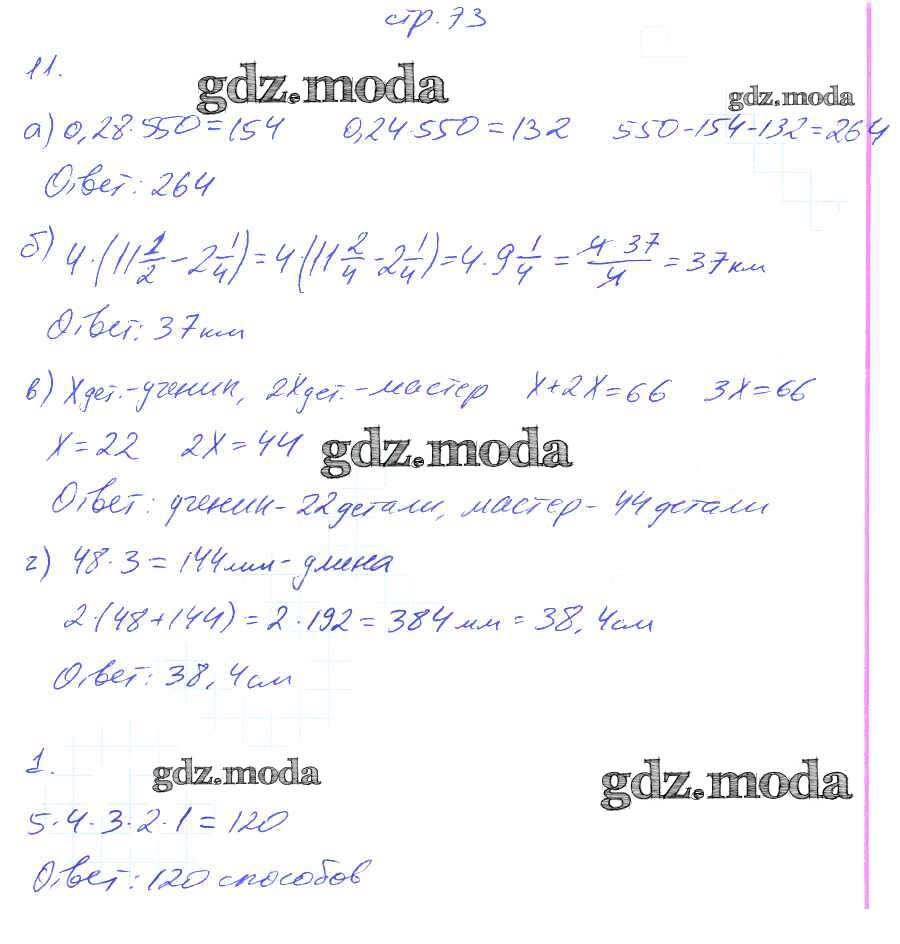 стр. 73
11.
gdz.moda
gdz.moda
а) 0,28·550=154 0,24·550=132 550-154-132=264
Ответ: 264
б) 4·(11 1/2 - 2 1/4) = 4(11 2/4 - 2 1/4) = 4·9 1/4 = 4·37/4 = 37км
Ответ: 37км
в) Xдет.-ученик, 2Xдет.-мастер X+2X=66 3X=66
X=22 2X=44
gdz.moda
Ответ: ученик-22детали, мастер-44детали
г) 48·3=144мм-длина
2·(48+144)=2·192=384мм=38,4см
Ответ: 38,4см
1.
gdz.moda
gdz.moda
5·4·3·2·1=120
Ответ: 120 способов